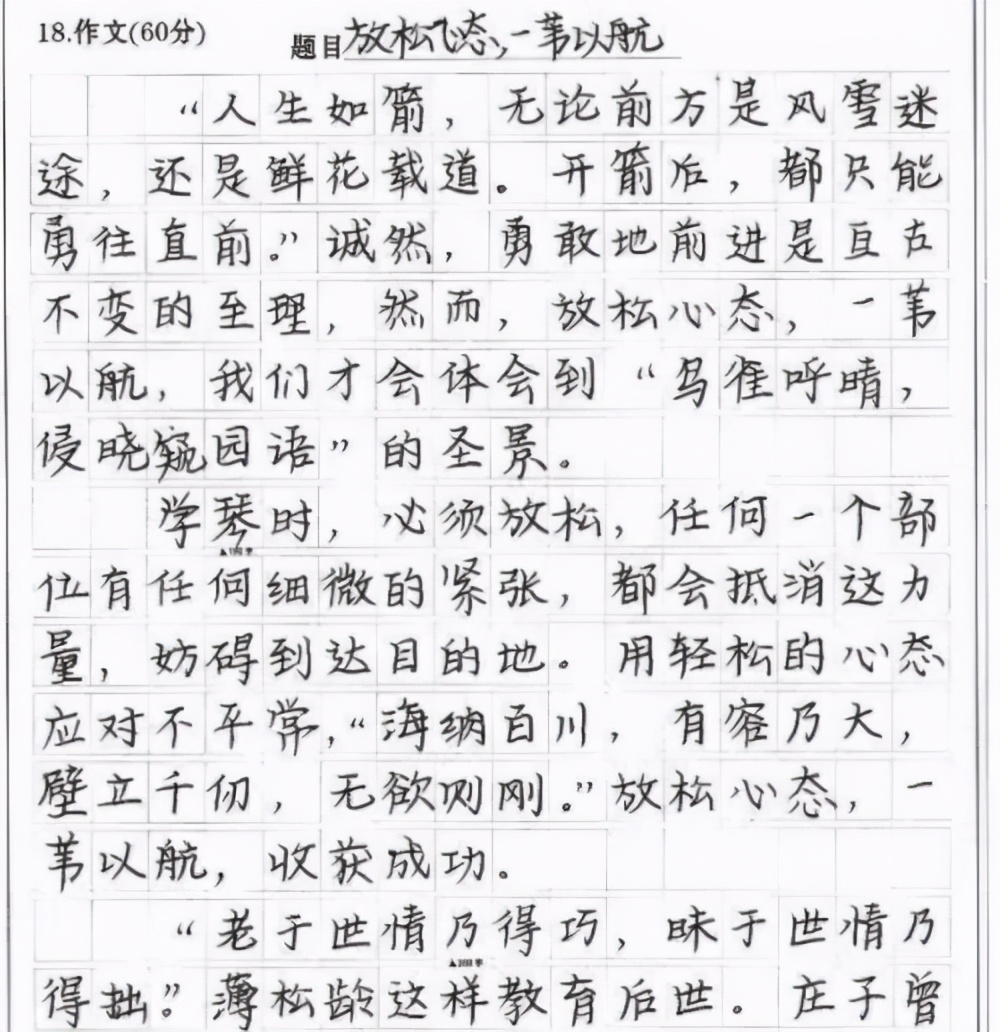 18.作文(60分)
题目放松心态,一苇以航
“人生如箭，无论前方是风雪迷
途，还是鲜花载道。开箭后，都只能
勇往直前。”诚然，勇敢地前进是亘古
不变的至理，然而，放松心态，一苇
以航，我们才会体会到“鸟雀呼晴，
侵晓窥园语”的圣景。
学琴时，必须放松，任何一个部
位有任何细微的紧张，都会抵消这力
量，妨碍到达目的地。用轻松的心态
应对不平常，“海纳百川，有容乃大，
壁立千仞，无欲则刚。”放松心态，一
苇以航，收获成功。
“老于世情乃得巧，昧于世情乃
得拙。”薄松龄这样教育后世。庄子曾